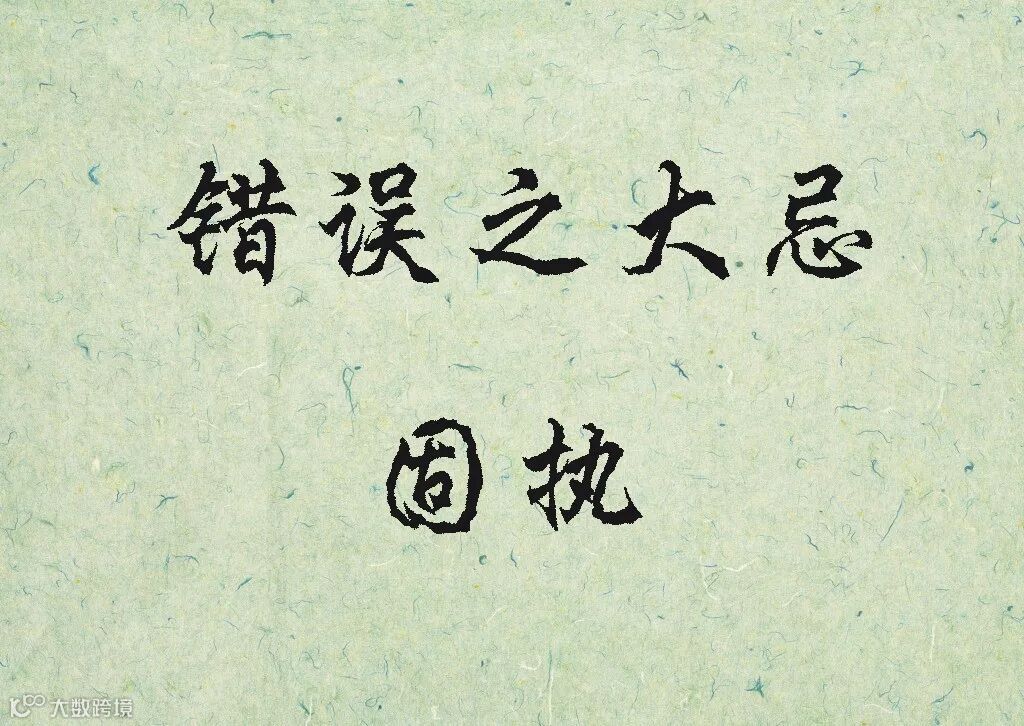 错误之大忌
固执
大数跨境